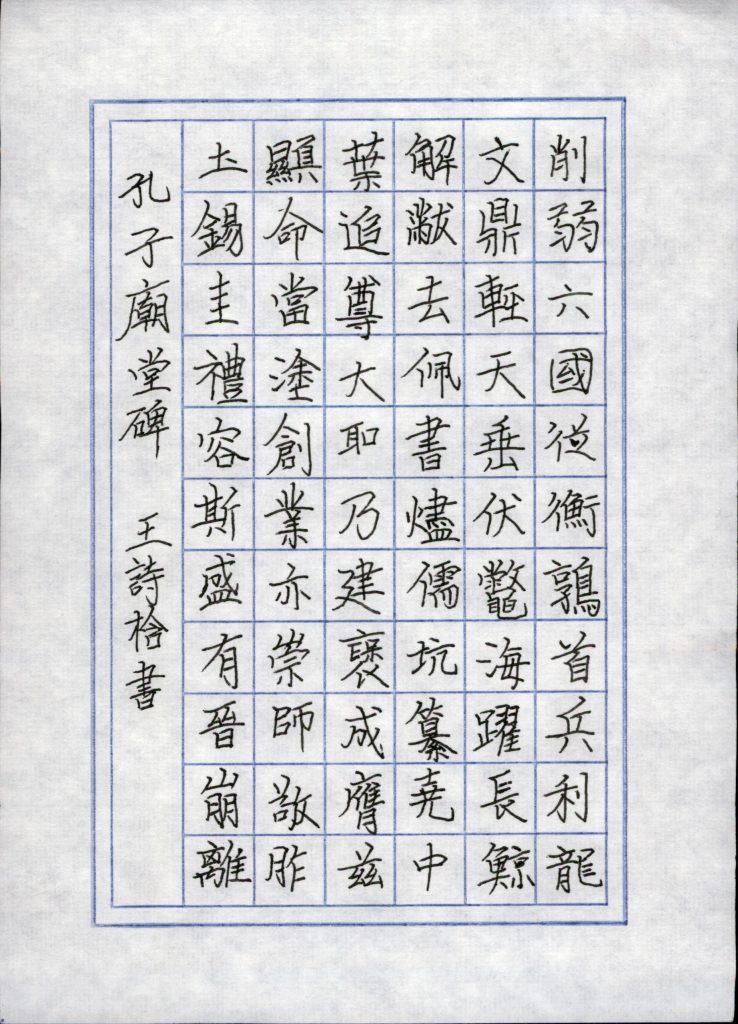 削弱六國從衡鶉首兵利龍
文鼎輕天垂伏鼈海躍長鯨
解黻去佩書燼儒坑纂堯中
葉追尊大聖乃建褒成膺茲
顯命當塗創業亦崇師敬胙
土錫圭禮容斯盛有晉崩離
孔子廟堂碑 王詩桧書